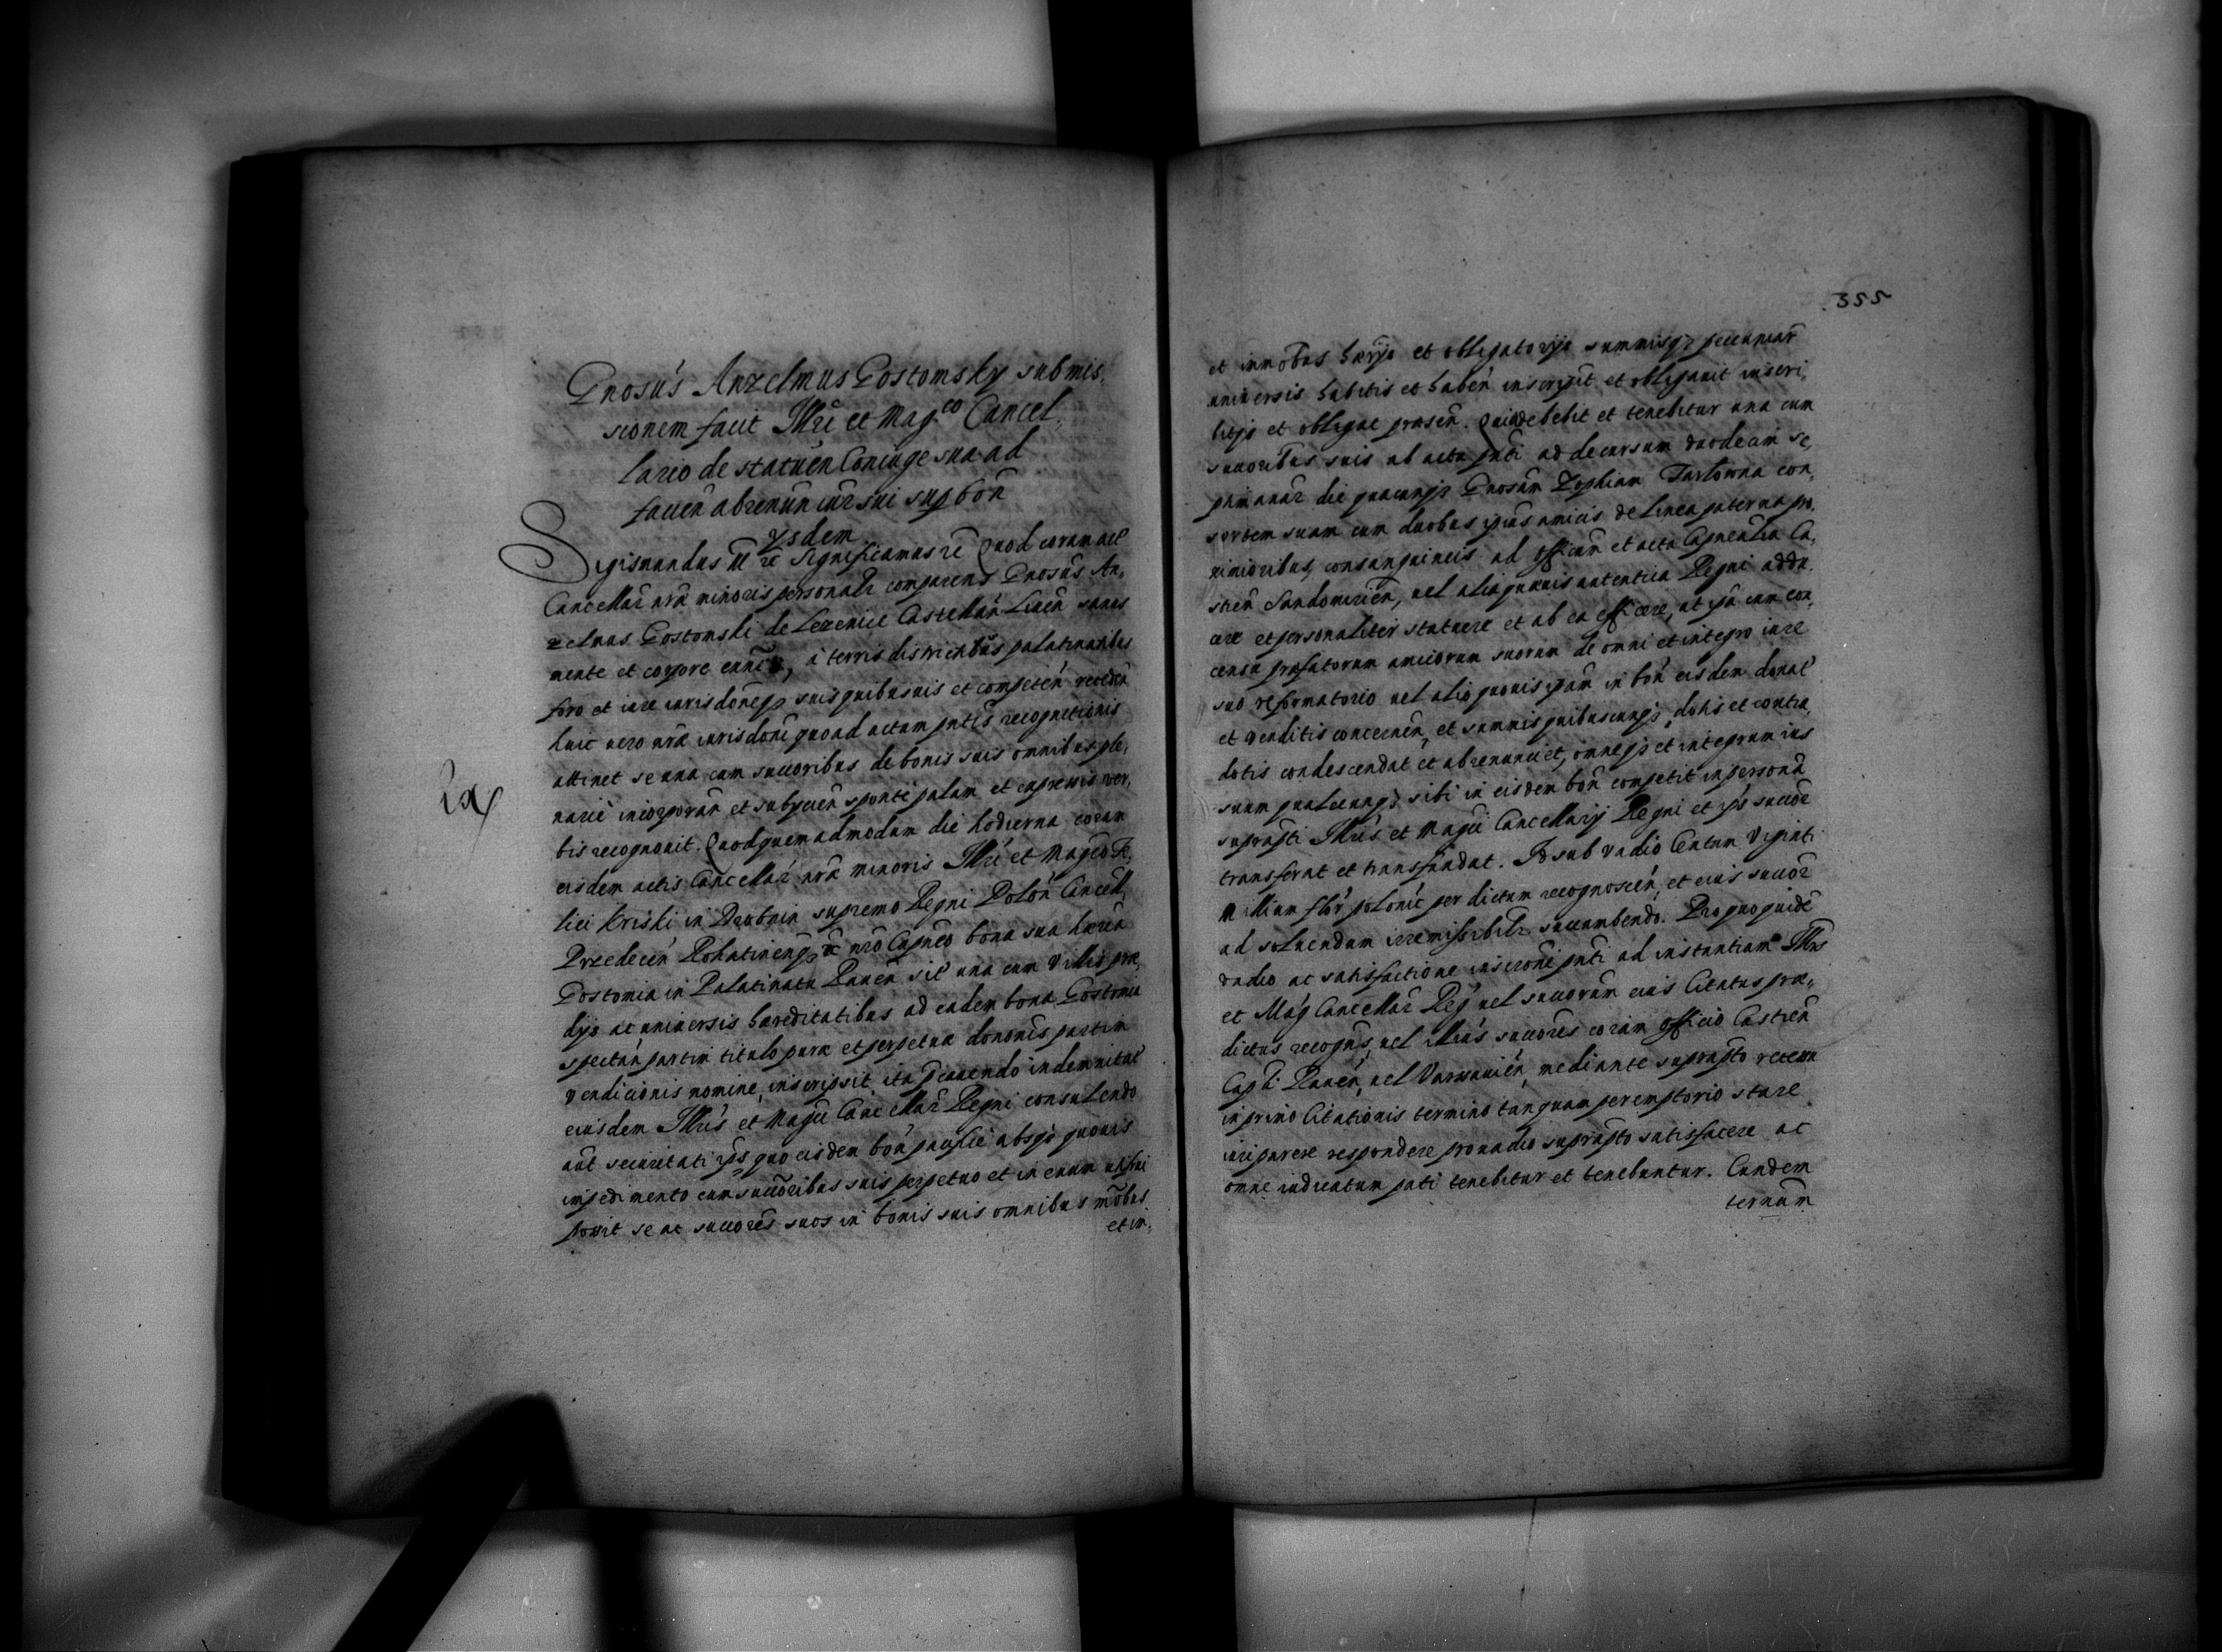 Gnosus Anzelmus Gostomsky submis,
sionem facit Illri et Mag.co Cancel,
lario de statuen Coniuge sua ad
facien abrenunciar sui sup bon
ysdem
Sigismundus III re Significamus re Quod coram act
Cancellar nrae minoris personalr comparens Gnosus An,
zelmus Gostomski de Lezenice Castellan sanus
mente et corpore à terris districtibus palatinatibus
foro et iure iurisdoneqz suis quibusuis et competen receden
huic uero nrae iurisdoni quoad actum pntis recognitionis
attinet se una cum succoribus de bonis suis omnibus ple,
narie incorporan et subycien sponte palam et expressis ver,
bis recognouit. Quod quemadmodum die hodierna coram
eisdem actis Cancellar nrae minoris Illri et Magco Fe,
lici Kriski in Drobnin supremo Regni Polon Cancell,
nro Capneo bona sua haerea
Gostomia in Palatinatu Rauen sit una cum Villis prae,
dys ac uniuersis haereditatibus ad eadem bona Gostomia
spectan partim titulo purae et perpetuae dononis partim
vendicionis nomine, inscripsit, ita praecauendo indemnitat
eiusdem Illris et Magci Cancellar Regni consulendo
securitati ips, quo eisdem bon pacifice absqz quouis
impedimento cum succoribus suis perpetuo et in euum utifrui
possit se ac succores suos in bonis suis omnibus mobus
et im,
355
et immobus haerys et obligatorys summisqz pecuniar
uniuersis habitis et haben inscripsit et obligauit inscri,
bitqz et obligat praesen. Quia debebit et tenebitur una cum
succoribus suis ab actu pnti ad decursum duodecim se,
ptimanar die quacunqz Gnosam Zophiam Tarlowna con,
sortem suam cum duobus ipsius amicis de linea paterna pro,
ximioribus, consanguineis ad officium et acta Capnealia Ca,
stren Sandomirien, uel alia quaeuis autentica Regni addu,
cere et personaliter statuere et ab ea efficere, ut ipsa cum con,
censu praefatorum amicorum suorum de omni et integro iure
suo reformatorio uel alio quouis ipsam in bon eisdem donat
et venditis concernen, et summis quibuscunqz, dotis et contra,
dotis condescendat et abrenunciet, omneqz et integrum ius
suum qualecunqz sibi in eisdem bon competit in persona
suprapti Illris et Magci Cancellary Regni et ips succor
transferat et transfundat. Id sub vadio Centum Viginti
Millium flor polonic per dictum recognoscen, et eius succor
ad soluendum irremissibilr succumbendo. Pro quo quide
vadio ac satisfactione inscrone pnti ad instantiam Illris
et Mag Cancellar Reg uel succorum eius Citatus prae,
dictus recogns, uel illius succores coram officio Castren
Capli Rauen, uel Varsauien, mediante suprapto recessu
in primo Citationis termino tanquam peremptorio stare
iuri parere respondere pro uadio suprapto satisfacere ac
omne iudicatum pati tenebitur et tenebuntur. Eundem
ternum